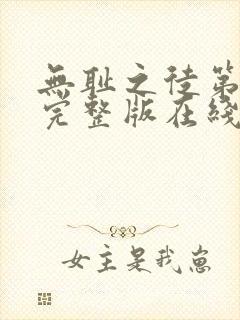 無耻之徒第
完整版在綫
女主是我崽